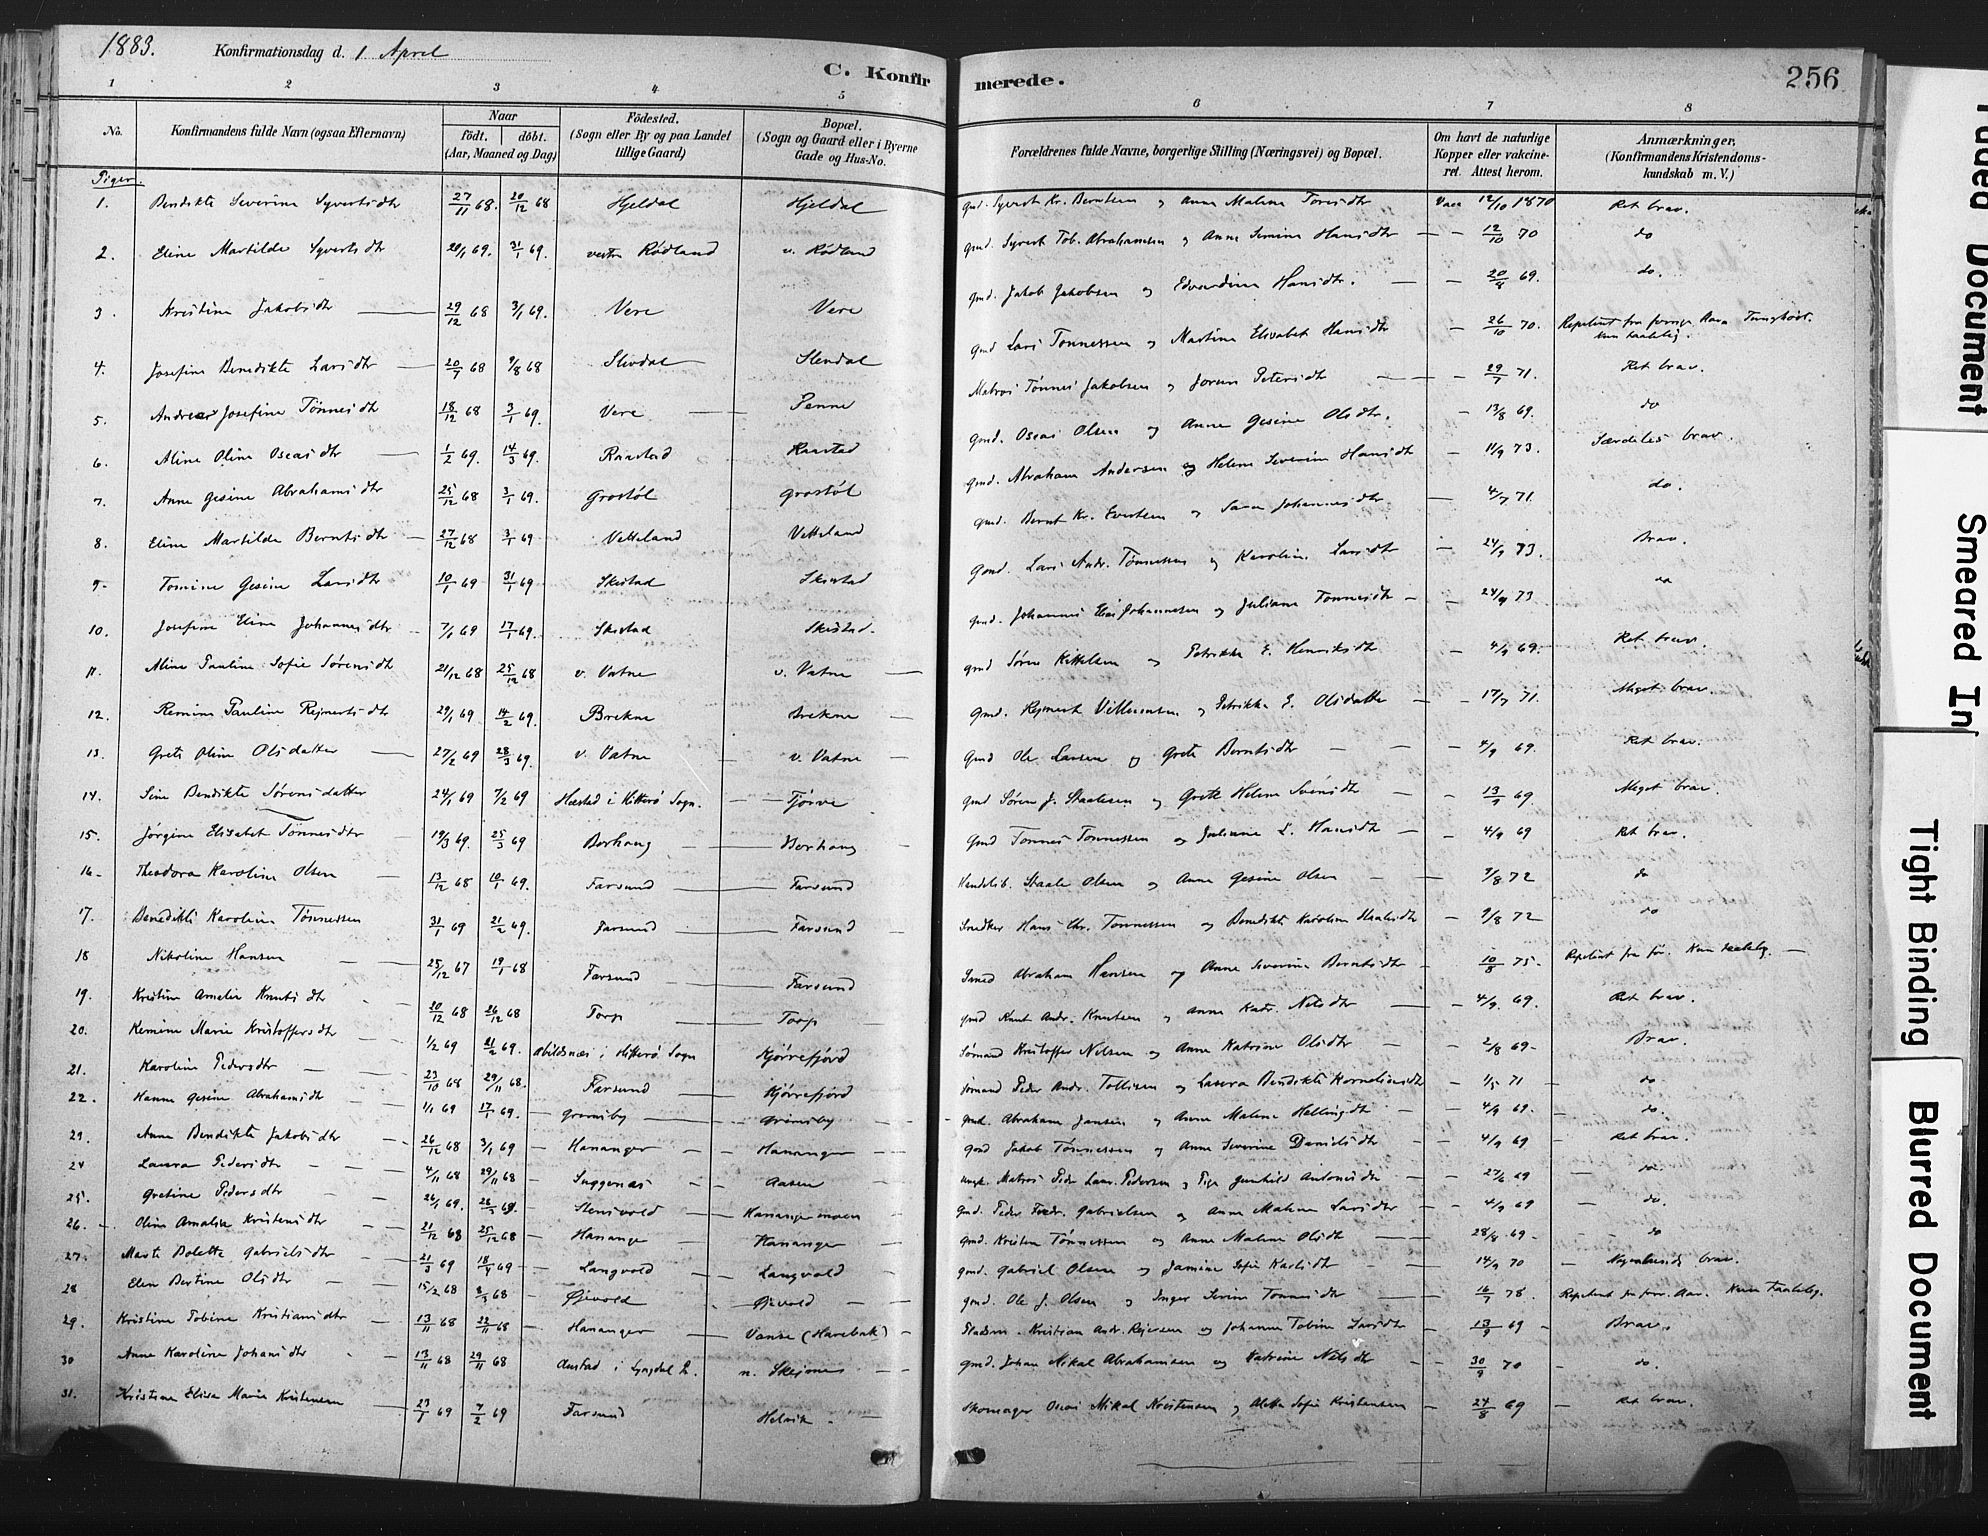 1883. Konfirmationsdag d. 1 April
C. Konfirmerede.
256
1 2 3 4 5 6 7 8
No. Konfirmandens fulde Navn (ogsaa Efternavn) Naar födt. döbt. (Aar, Maaned og Dag) Födested. (Sogn eller By og paa Landet tillige Gaard) Bopæl. (Sogn og Gaard eller i Byerne Gade og Hus-No. Forældrenes fulde Navne, borgerlige Stilling (Næringsvei) og Bopæl. Om havt de naturlige Kopper eller vakcineret. Attest herom. Anmærkninger. (Konfirmandens Kristendomskundskab m. V.)
Piger.
1. Bendikte Severine Syvertsdtr 27/11 68. 20/12 68 Hjeldal Hjeldal Gmd. Syvert Kr. Berntsen og Anne Malene Toresdtr Vacc 12/10 1870 Ret brav.
2. Eline Martilde Syvertsdtr 20/1 69. 31/1 69. vestre Rødland v. Rødland Gmd. Syvert Tob. Abrahamsen og Anne Semine Hansdtr — 12/10 70 do
3. Kristine Jakobsdtr 29/12 68 3/1 69. Vere Vere Gmd. Jakob Jakobsen og Edvardine Hansdtr. — 20/8 69. do.
4. Josefine Benedikte Larsdtr 20/7 68 9/8 68 Slevdal Slevdal Gmd Lars Tønnessen og Martine Elisabet Hansdtr — 26/10 70. Repetent fra forrige Aar. Tunghørt. Kun taalelig.
5. Andrea Josefine Tønnesdtr 18/12 68 3/1 69. Vere Penne Matros Tønnes Jakobsen og Jorun Petersdtr — 29/7 71. Ret brav.
6. Aline Oline Oseasdtr 1/2 69. 14/3 69. Raastad Raastad Gmd. Oseas Olsen og Anne Gesine Olsdtr. — 13/8 69. do
7. Anne Gesine Abrahamsdtr 25/12 68 3/1 69. Grostøl Grostøl Gmd. Abraham Andersen og Helene Severine Hansdtr — 11/9 73. Særdeles brav.
8. Eline Martilde Berntsdtr 27/12 68 3/1 69 Vetteland Vetteland Gmd. Bernt Kr. Evertsen og Sara Johannesdtr — 4/7 71. do.
9. Tomine Gesine Larsdtr 10/1 69 31/1 69 Skeistad Skeistad Gmd. Lars Andr. Tønnessen og Karoline Larsdtr — 24/9 73. Brav.
10. Josefine Eline Johannesdtr 7/1 69 17/1 69. Skeistad Skeistad. Gmd. Johannes Elias Johannesen og Juliane Tønnesdtr — 24/9 73. do
11. Aline Pauline Sofie Sørensdtr 21/12 68 25/12 68 v. Vatne v. Vatne Gmd Søren Kittelsen og Petrikke E. Henriksdtr — 4/9 69. Ret brav.
12. Remine Pauline Rejnertsdtr 29/1 69 14/2 69. Brekne Brekne Gmd. Rejnert Villumsen og Petrikke E. Olsdatter — 17/7 71. Meget brav.
13. Grete Oline Olsdatter 27/2 69 28/3 69. v. Vatne v. Vatne Gmd Ole Larsen og Grete Berntsdtr — 4/9 69. Ret brav.
14. Sine Bendikte Sørensdatter 24/1 69 7/2 69 Hæstad i Hitterø Sogn. Tjørve Gmd Søren J. Staalesen og Grete Helene Svensdtr — 13/9 69. Meget brav.
15. Jørgine Elisabet Tønnesdtr 19/3 69. 25/3 69 Borhaug Borhaug Gmd Tønnes Tønnessen og Juliane L. Hansdtr — 4/9 69 Ret brav.
16. Theodora Karoline Olsen 13/12 68 10/1 69. Farsund Farsund Handelsb. Staale Olsen og Anne Gesine Olsen — 9/8 72 do
17. Benedikte Karoline Tønnessen 31/1 69 21/2 69. Farsund Farsund Snedker Hans Chr. Tønnessen og Benedikte Karoline Staalesdtr — 9/8 72 do
18 Nikoline Hansen 25/12 67 19/1 68 Farsund Farsund Smed Abraham Hansen og Anne Severine Berntsdtr — 10/8 75. Repetent fra for. Kun taalelig.
19. Kristine Amalie Knutsdtr 20/12 68 26/12 68 Torp Torp Gmd Knut Andr. Knutsen og Anne Katr. Nilsdtr — 4/9 69. Ret brav.
20. Remine Marie Kristoffersdtr 1/2 69 21/2 69. Abildsnæs i Hitterø Sogn Kjørrefjord Sømand Kristoffer Nilsen og Anne Katrine Olsdtr — 2/8 69. Brav.
21. Karoline Pedersdtr 23/10 68 29/11 68. Farsund Kjørrefjord Sømand Peder Andr. Tollisen og Laura Bendikte Korneliusdtr — 1/5 71 do
22. Hanne Gesine Abrahamsdtr 1/1 69 17/1 69. Grimsby Grimsby Gmd. Abraham Jansen og Anne Malene Hellingsdtr — 4/9 69. do.
23. Anne Bendikte Jakobsdtr 26/12 68 3/1 69 Hananger Hananger Gmd Jakob Tønnessen og Anne Severine Danielsdtr — 4/9 69 Ret brav.
24 Laura Pedersdtr 4/11 68 29/11 68 Snggenæs Aasen Ungk. Matros Peder Laur. Pedersen og Pige Gunhild Antonsdtr — 27/6 69 do.
25. Gretine Pedersdtr 26/1 69. 26/3 69. Stensvold Hanangermoen Gmd. Peder Fredr. Gabrielsen og Anne Malene Larsdtr — 4/9 69 do.
26. Oline Amalie Kristensdtr 21/12 68 25/12 68 Hananger Hananger Gmd. Kristen Tønnessen og Anne Malene Olsdtr 28/8 69 do
27. Marte Bolette Gabrielsdtr 21/3 69 18/4 69 Langvold Langvold Gmd. Gabriel Olsen og Jamine Sofie Karlsdtr — 14/9 70 Nogenlunde brav.
28 Elen Bertine Olsdtr 15/2 68 8/3 68 Øjvold Øjvold Gmd. Ole J. Olsen og Inger Serine Tønnesdtr — 16/7 78. Repetent fra forr. Aar. Kun taalelig.
29. Kristine Tobine Kristiansdtr 13/11 68 22/11 68 Hananger Vanse (Harebak) Pladsm. Kristian Andr. Rejersen og Johanne Tobine Larsdtr — 13/9 69 Brav.
30 Anne Karoline Johansdtr 13/11 68 29/11 68 Austad i Lyngdal P. n. Skejsnes Gmd. Johan Mikal Abrahamsen og Katrine Nilsdtr — 30/9 70 do.
31. Kristine Elisa Marie Kristensen 23/1 69 7/2 69 Farsund Helvik Skomager Oseas Mikal Kristensen og Aletta Sofie Kristensen — 24/8 69 Ret brav.
Faded Document
Smeared Ink
Tight Binding
Blurred Document